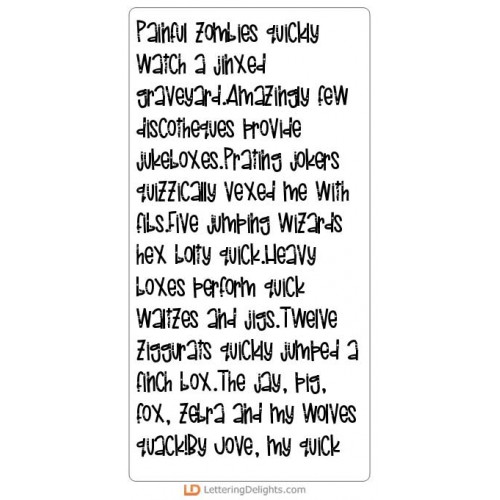 Painful zombies quickly
watch a jinxed
graveyard.Amazingly few
discotheques provide
jukeboxes.Prating jokers
quizzically vexed me with
fibs.Five jumping wizards
hex bolty quick.Heavy
boxes perform quick
waltzes and jigs.Twelve
ziggurats quickly jumped a
finch box.The jay, pig,
fox, zebra and my wolves
quack!By Jove, my quick
LD LetteringDelights.com